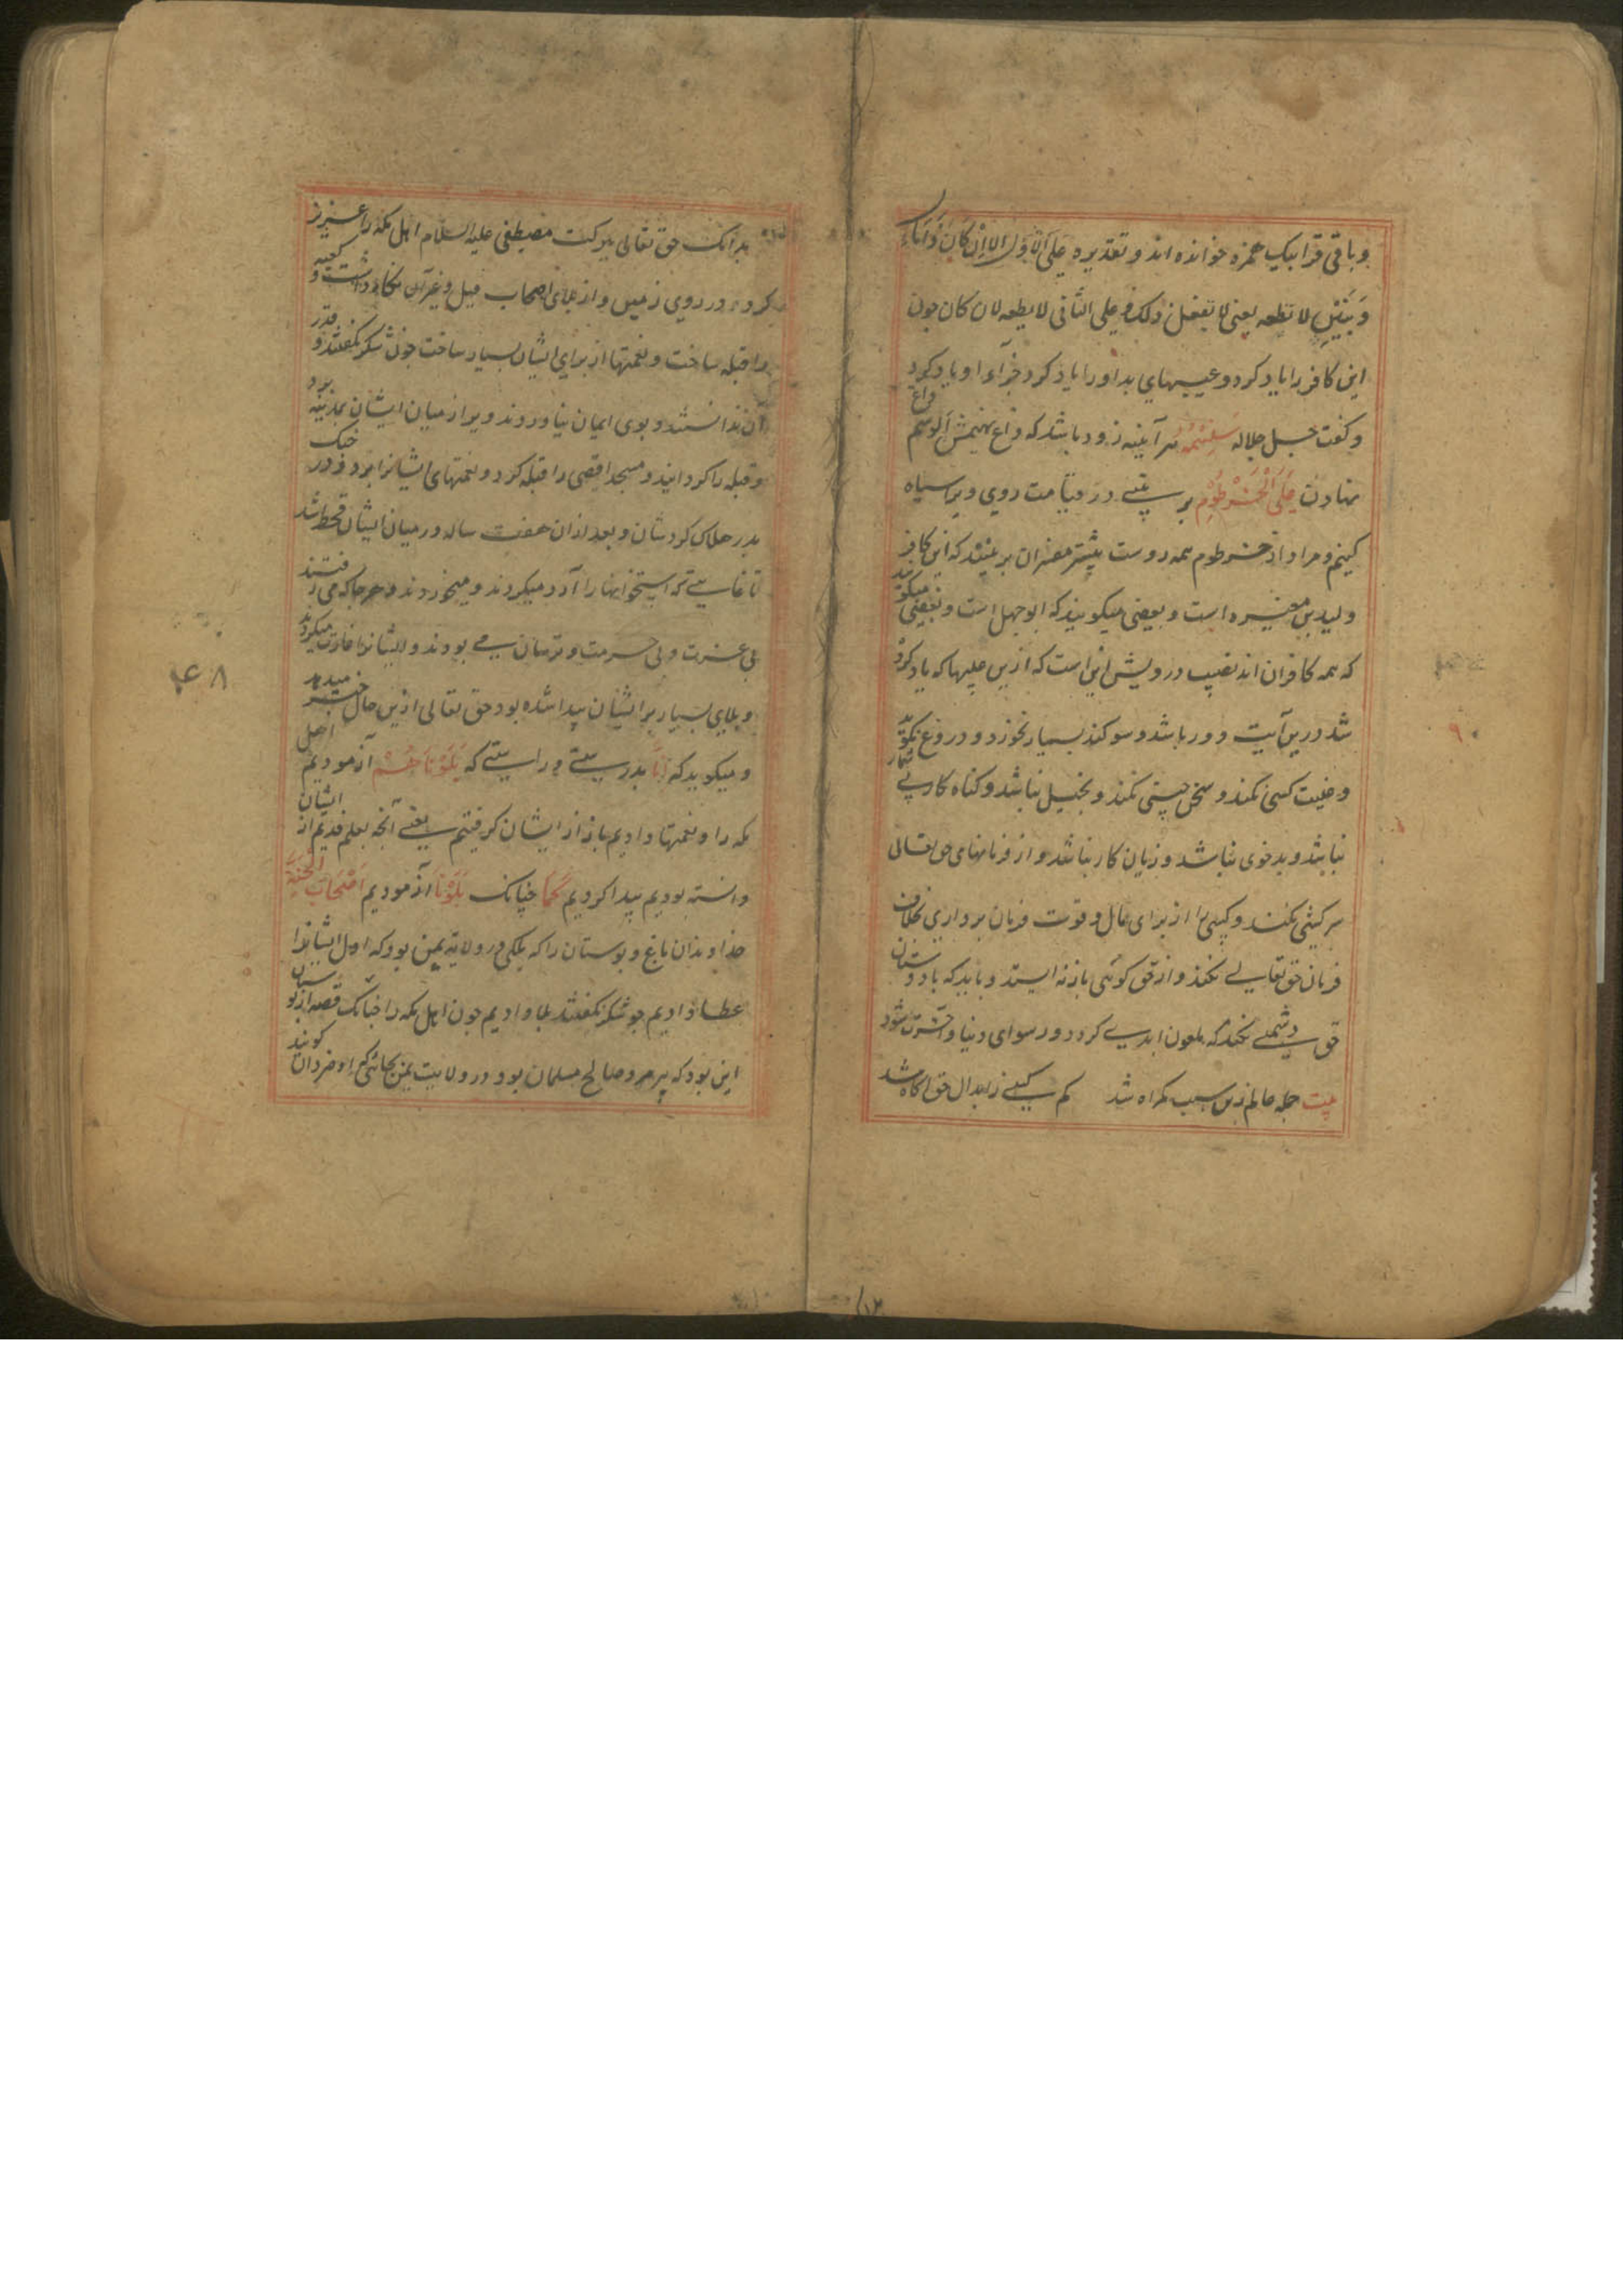 و باقی قرا بیک همزه خوانده اند و تقدیره علی الاول الاان کان ذا مال
و بنین لا تطعه یعنی لا تفعل ذلک و علی الثانی لا یطعه لان کان جون
این کافر را یاد کرد و عیبهای بد او را یاد کرد جزآء او یاد کرد
و کفت جل جلاله سنسمه هر آینه زود باشد که داغ نهیمش الوسم داغ
نهادن علی الخرطوم بر بینی در قیامت روی ویرا سیاه
کینم و مراد از خرطوم همه روست بیشتر مفسران برینند که این کافر
ولید بن مغیره است و بعضی میکویند که ابوجهل است و بعضی میکویند
که همه کافران اند نصیب درویش این است که ازین عیبها که یاد کرده
شد درین آیت دور باشد و سوکند بسیار نخورد و دروغ نکوید
و غیبت کسی نکند و سخن چینی نکند و بخیل نباشد و کناه کار بی شمار
نباشد و بدخوی نباشد و زیان کار نباشد و از فرمانهای حق تعالی
سرکشی نکند و کسی را از برای مال و قوت فرمان برداری بخلاف
فرمان حق تعالی نکند و از حق کوئی باز نه ایستد و باید که با دوستان
حق دشمنی نکند که ملعون ابدی کردد و رسوای دنیا و آخرت شود
بیت جمله عالم زین سبب کمراه شد کم کسی ز ابدال حق آکاه شد
بدانک حق تعالی ببرکت مصطفی علیه السلام اهل مکه را عزیز
کرده در روی زمین و از بلای اصحاب فیل و غیر آن نکاه داشت و کعبه
را قبله ساخت و نعمتها از برای ایشان بسیار ساخت جون شکر نکفتند و قدر
آن ندانستند و بوی ایمان نیاوردند ویرا از میان ایشان بمدینه برد
و قبله را کردانید و مسجد اقصی را قبله کرد و نعمتهای ایشانرا ببرد و در جنک
بدر هلاک کردشان و بعد از آن هفت سال در میان ایشان قحط شد
تا غایتی که استخوانها را آرد میکردند و میخوردند و هر جا که می رفتند
بی عزت و بی حرمت و ترسان می بودند و ایشانرا غارت میکردند
و بلای بسیار بر ایشان پیدا شده بود حق تعالی ازین حال خبر میدهد
و میکوید که انا بدرستی و راستی که بلوناهم آزمودیم اهل
مکه را و نعمتها دادیم باز از ایشان کرفتیم یعنی آنجه بعلم قدیم از ایشان
دانسته بودیم پیدا کردیم کما جنانک بلونا آزمودیم اصحاب الجنة
خداوندان باغ و بوستان را که بملکی در ولایه یمن بود که اول ایشانرا
عطا دادیم جو شکر نکفتند بلا دادیم جون اهل مکه را جنانک قصه از بوستان
این بود که پیر مرد صالح مسلمان بود در ولایت یمن بجائی که او ضروان کویند
۴۸